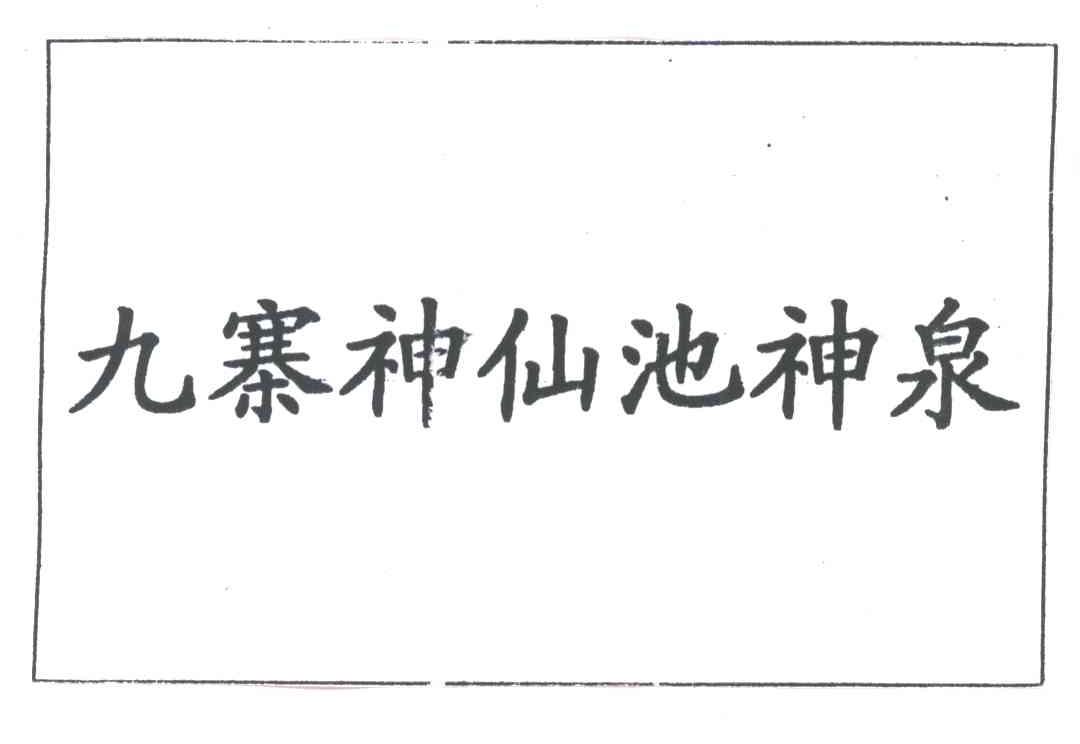 九寨神仙池神泉